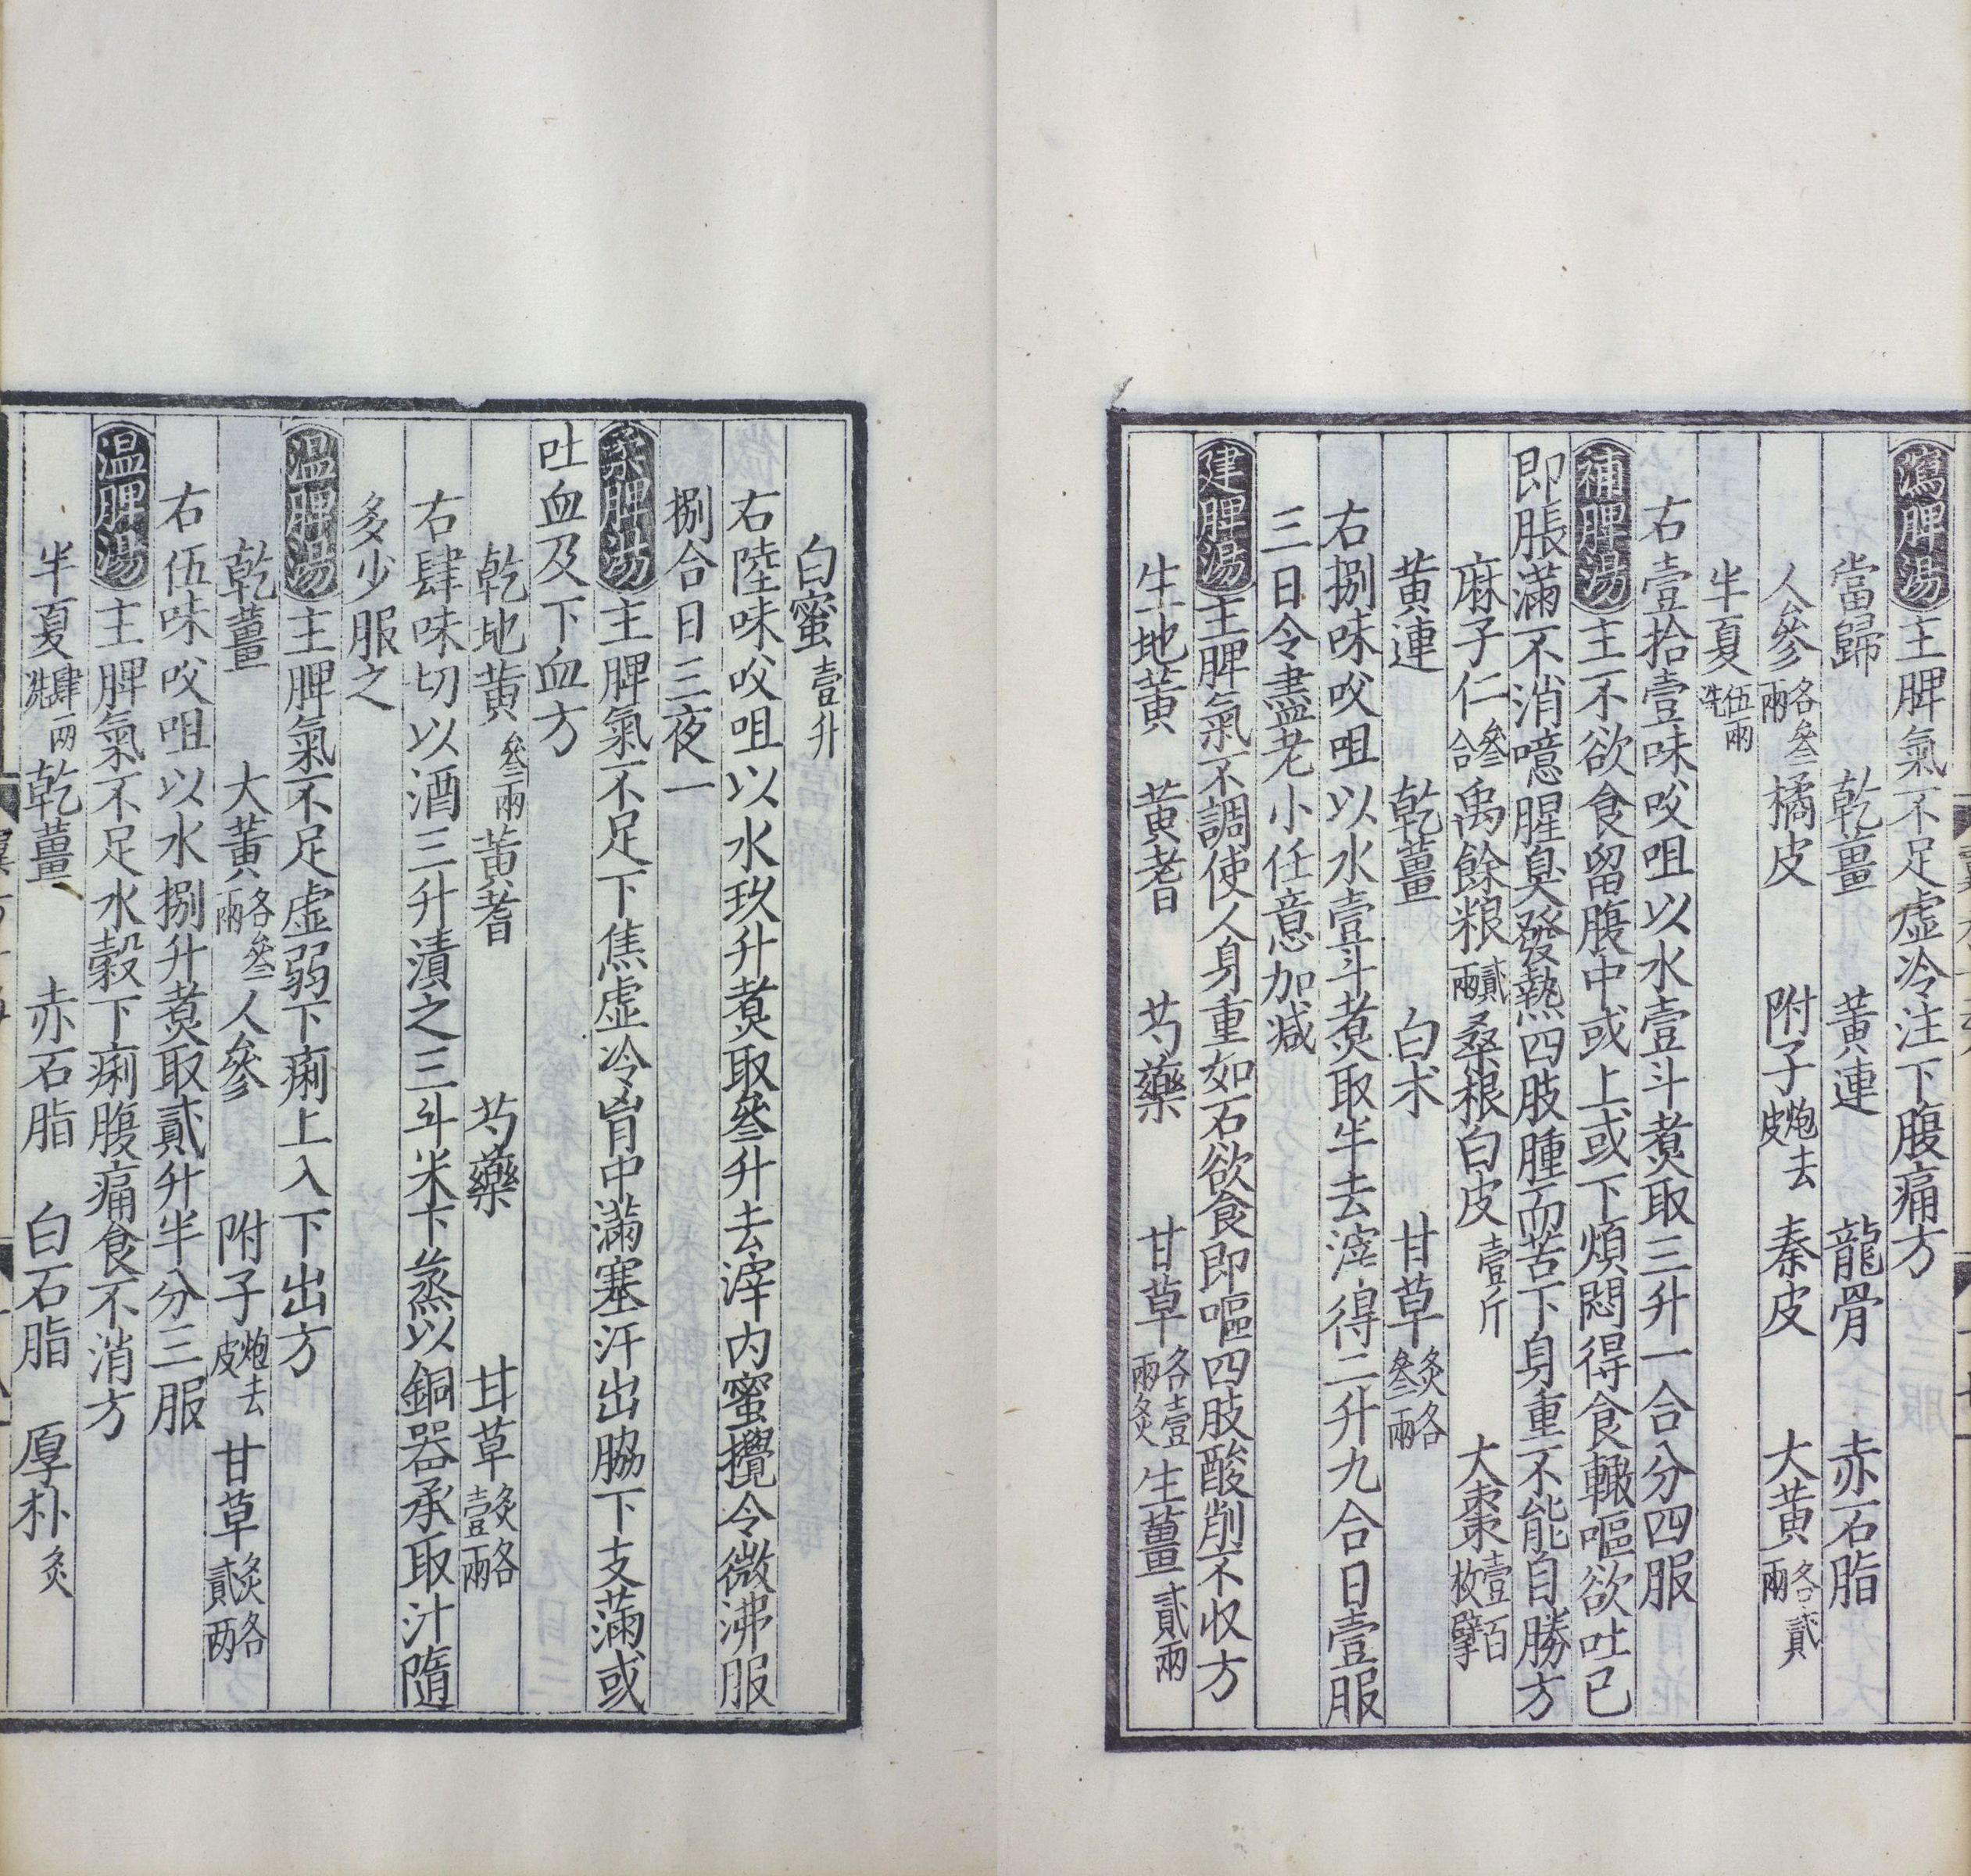 瀉脾湯主脾氣不足虛冷注下腹痛方
當歸 乾薑 黃連 龍骨 赤石脂
人參各叁兩 橘皮 附子炮去皮 秦皮 大黃各貳兩
半夏伍兩洗
右壹拾壹味㕮咀以水壹斗煑取三升一合分四服
補脾湯主不欲食留腹中或上或下煩悶得食輙嘔欲吐已
即脹滿不消噫腥臭發熱四肢腫而苦下身重不能自勝方
麻子仁叁合 禹餘粮貳兩 桑根白皮壹斤 大棗壹百枚擘
黃連 乾薑 白朮 甘草炙各叁兩
右捌味㕮咀以水壹斗煑取半去滓得二升九合日壹服
三日令盡老小任意加减
建脾湯主脾氣不調使人身重如石欲食即嘔四肢酸削不收方
生地黃 黃耆 芍藥 甘草各壹兩炙 生薑貳兩
白蜜壹升
右陸味㕮咀以水玖升煑取叁升去滓内蜜攪令微沸服
捌合日三夜一
柔脾湯主脾氣不足下焦虛冷胷中滿塞汗出脇下支滿或
吐血及下血方
乾地黃叁兩 黃耆 芍藥 甘草炙各壹兩
右肆味切以酒三升漬之三斗米下蒸以銅器承取汁隨
多少服之
温脾湯主脾氣不足虛弱下痢上入下出方
乾薑 大黃各叁兩 人參 附子炮去皮 甘草炙各貳两
右伍味㕮咀以水捌升煑取貳升半分三服
温脾湯主脾氣不足水穀下痢腹痛食不消方
半夏肆兩洗 乾薑 赤石脂 白石脂 厚朴炙